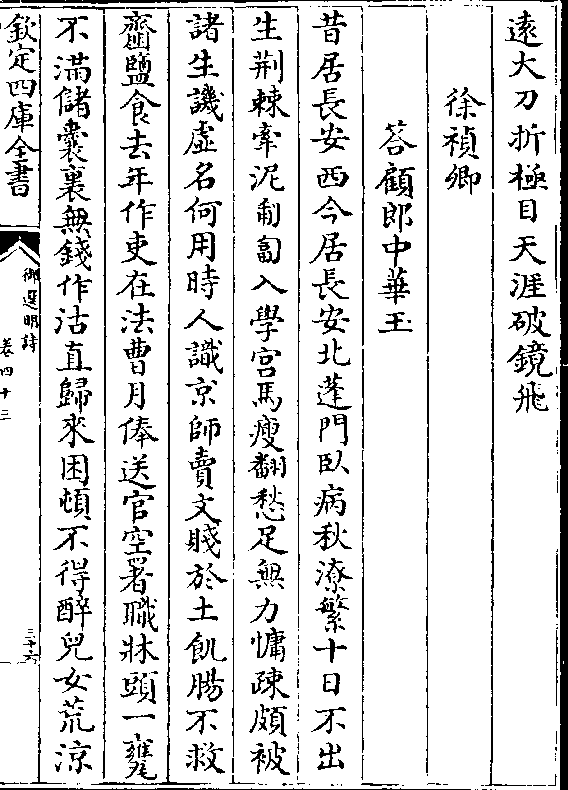 遠大刀折極目天涯破鏡飛
徐禎卿
荅顧郎中華玉
昔居長安西今居長安北蓬門臥病秋潦繁十日不出
生荆棘牽泥匍匐入學宮馬瘦翻愁足無力慵疎頗被
諸生譏虛名何用時人識京師賣文賤於土飢腸不救
齏鹽食去年作吏在法曹月俸送官空署職牀頭一甕
不滿儲囊裏無錢作沽直歸來困頓不得醉兒女荒涼
欽定四庫全書
御選明詩
卷四十三
三十六